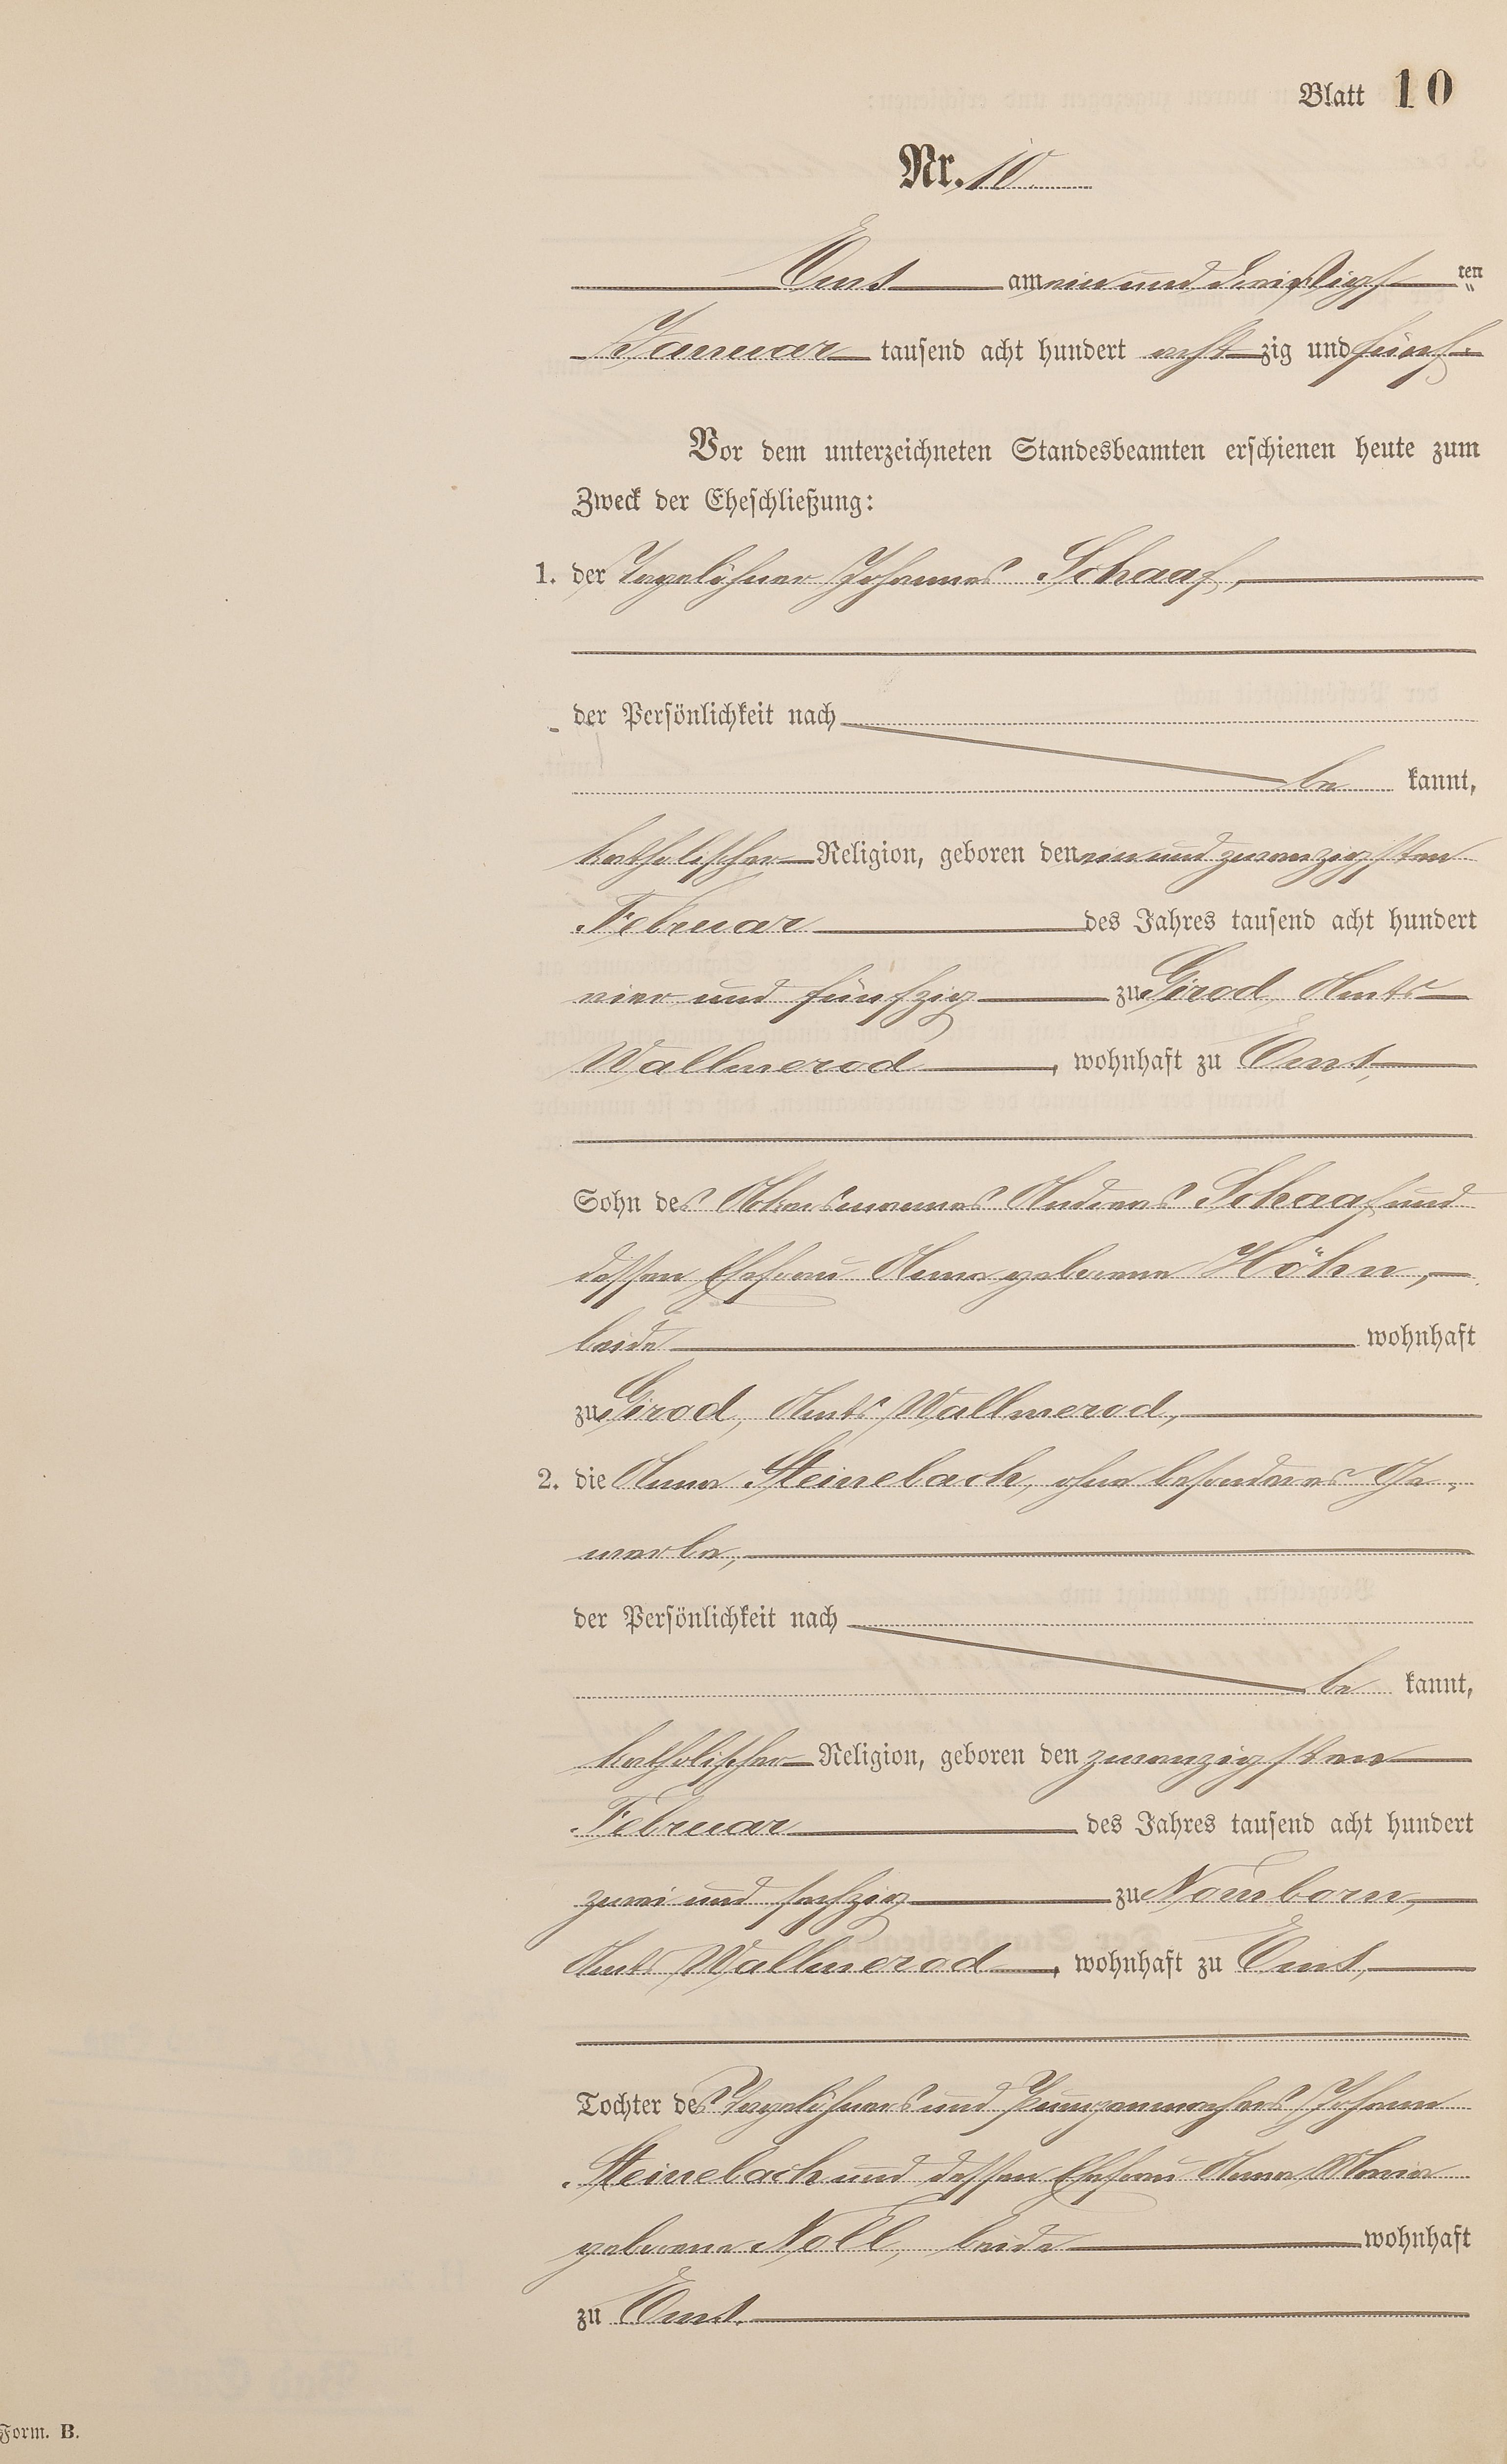 Blatt 10
Nr. 10
Ems am ein und dreißigsten
Januar tausend acht hundert achtzig und fünf.
Vor dem unterzeichneten Standesbeamten erschienen heute zum
Zweck der Eheschließung:
1. der Tagelöhner Johannes Schaaf,
der Persönlichkeit nach
be kannt,
katholischer Religion, geboren den ein und zwanzigsten
Februar des Jahres tausend acht hundert
vier und fünfzig zu Girod, Amts
Wallmerod, wohnhaft zu Ems,
Sohn des Ackersmannes Andreas Schaaf und
dessen Ehefrau Anna geborene Höhn,
beide wohnhaft
zu Girod, Amts Wallmerod,
2. die Anna Steinebach, ohne besonderes Ge-
werbe,
der Persönlichkeit nach
be kannt,
katholischer Religion, geboren den zwanzigsten
Februar des Jahres tausend acht hundert
zwei und sechzig zu Nomborn,
Amts Wallmerod, wohnhaft zu Ems,
Tochter des Tagelöhners und Johann
Steinebach und dessen Ehefrau Anna Maria
geborene Noll, beide wohnhaft
zu Ems.
Form. B.